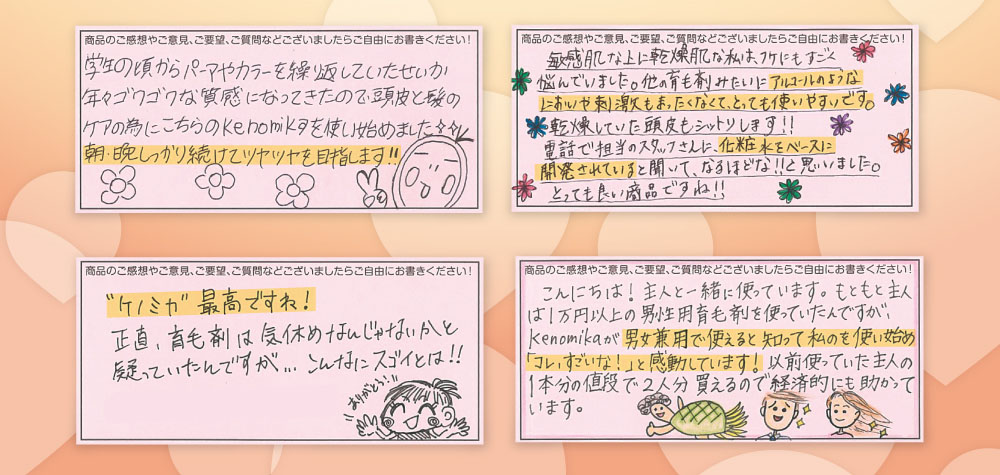 商品のご感想やご意見、ご要望、ご質問などございましたらご自由にお書きください!
学生の頃からパーマやカラーを繰り返していたせいか
年々ゴワゴワな質感になってきたので頭皮と髪の
ケアの為にこちらのkenomikaを使い始めました☆☆
朝・晩しっかり続けてツヤツヤを目指します!!
商品のご感想やご意見、ご要望、ご質問などございましたらご自由にお書きください!
敏感肌な上に乾燥肌な私は、フケにもすごく
悩んでいました。他の育毛剤みたいにアルコールのような
においや刺激もまったくなくて、とっても使いやすいです。
乾燥していた頭皮もシットリします!!
電話で担当のスタッフさんに、化粧水をベースに
開発されていると聞いて、なるほどな!!と思いました。
とっても良い商品ですね!!
商品のご感想やご意見、ご要望、ご質問などございましたらご自由にお書きください!
"ケノミカ" 最高ですね!
正直、育毛剤は気休めなんじゃないか、と
疑っていたんですが... こんなにスゴイとは!!
ありがとう!
商品のご感想やご意見、ご要望、ご質問などございましたらご自由にお書きください!
こんにちは! 主人と一緒に使っています。もともと主人
は1万円以上の男性用育毛剤を使っていたんですが、
Kenomikaが男女兼用で使えると知って私のを使い始め
「コレ、すごいな!」と感動しています! 以前使っていた主人の
1本分の値段で2人分買えるので経済的にも助かって
います。